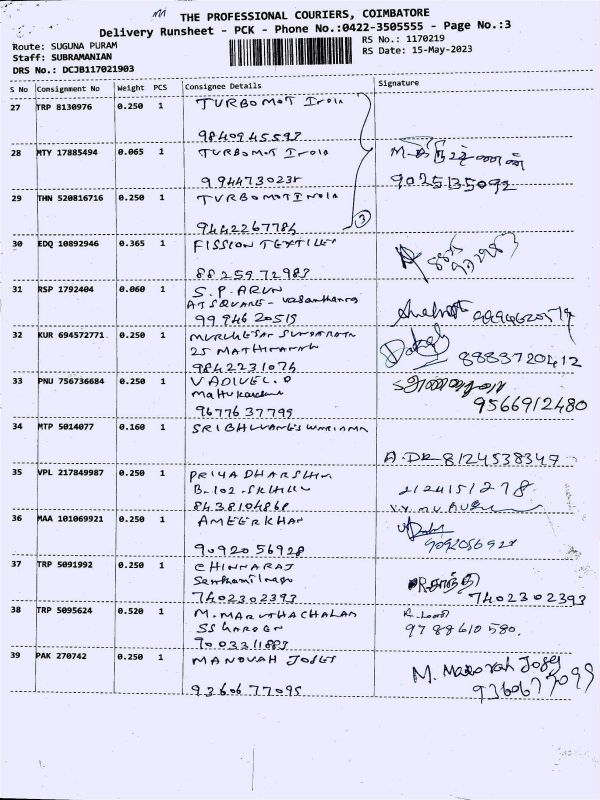 THE PROFESSIONAL COURIERS, COIMBATORE
Delivery Runsheet - PCK - Phone No.:0422-3505555 - Page No.:3
Route: SUGUNA PURAM
RS No.: 1170219
Staff: SUBRAMANIAN
RS Date: 15-May-2023
DRS No.: DCJB117021903
S No Consignment No Weight PCS Consignee Details Signature
27 TRP 8130976 0.250 1 TURBOMOT INDIA
9840945593
28 MTY 17885494 0.065 1 TURBOMOT INDIA
9944730235
9025135092
29 THN 520816716 0.250 1 TURBOMOT INDIA
9442267784
3
30 EDQ 10892946 0.365 1 FISSION TEXTILES
8825972983
31 RSP 1792404 0.060 1 S.P. ARUN
AT SQUARE - Vasanthanagar
99946 20519
32 KUR 694572771 0.250 1 MURUKESAN SUNDARAM
25
9842231074
8883720412
33 PNU 756736684 0.250 1 VADIVEL.D
9677637795
9566912480
34 MTP 5014077 0.160 1
8124538347
35 VPL 217849987 0.250 1 PRIYADHARSHINI
B-102-
8438104868
36 MAA 101069921 0.250 1 AMEERKHAN
9092056928
9092056928
37 TRP 5091992 0.250 1 CHINNARAJ
Senthamilnagar
7402302393
7402302393
38 TRP 5095624 0.520 1 M. MARUTHACHALAM
SS GARDEN
9003311883
9788610580.
39 PAK 270742 0.250 1 MANOVAH JOSES
M. Manovah Joses
9360677095